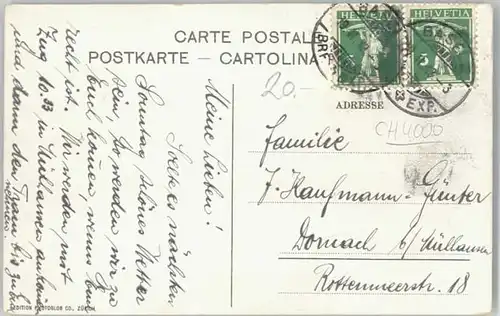 CARTE POSTALE
POSTKARTE - CARTOLINA
HELVETIA
HELVETIA
5
BASEL
EXP.
20.-
ADRESSE
CH4000
Meine Lieben!
Sollte nächsten
Sonntag schönes Wetter
sein, so werden wir zu
Euch kommen, wenns Euch
recht ist. Wir werden mit
Zug 10.33 in Mülhausen
und dann den Tram bis zu
nehmen.
Familie
J. Kaufmann-Günter
Dornach b/Mülhausen
Rottenmeerstr. 18
EDITION PHOTOGLOB CO., ZÜRICH